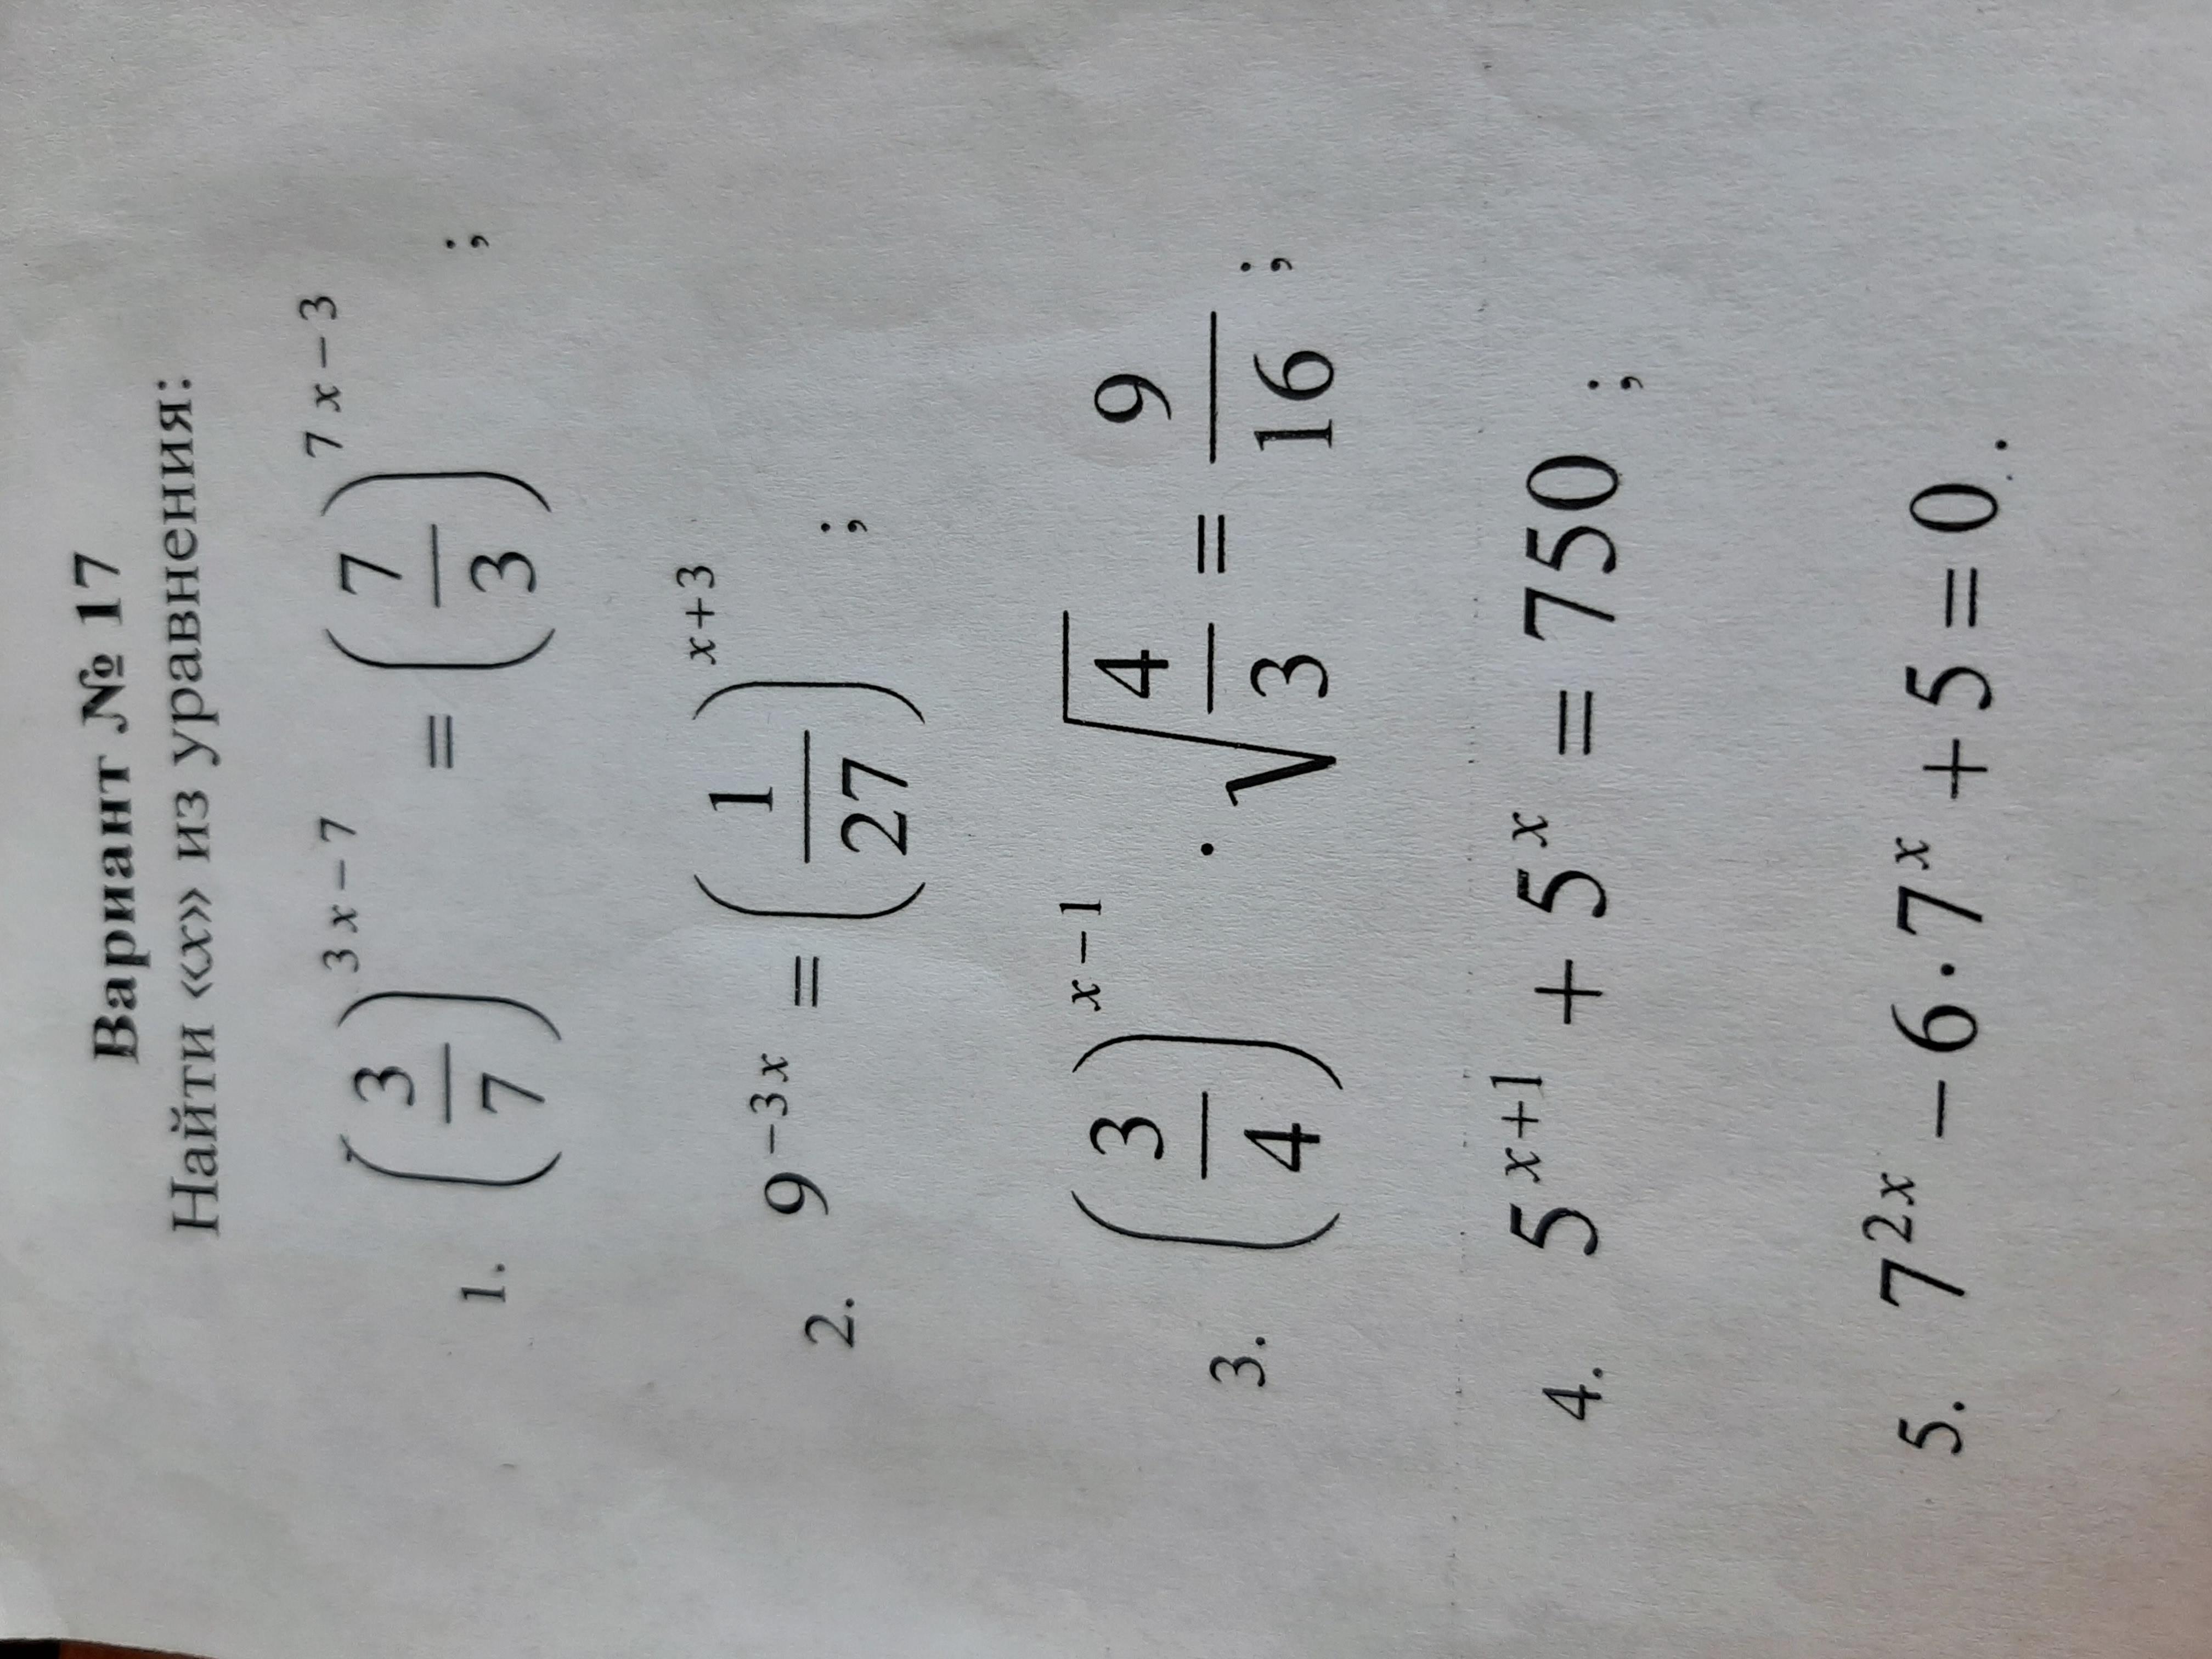 Вариант № 17
Найти «x» из уравнения:
1. (3/7)^(3x−7) = (7/3)^(7x−3) ;
2. 9^(−3x) = (1/27)^(x+3) ;
3. (3/4)^(x−1) · √(4/3) = 9/16 ;
4. 5^(x+1) + 5^x = 750 ;
5. 7^(2x) − 6 · 7^x + 5 = 0 .